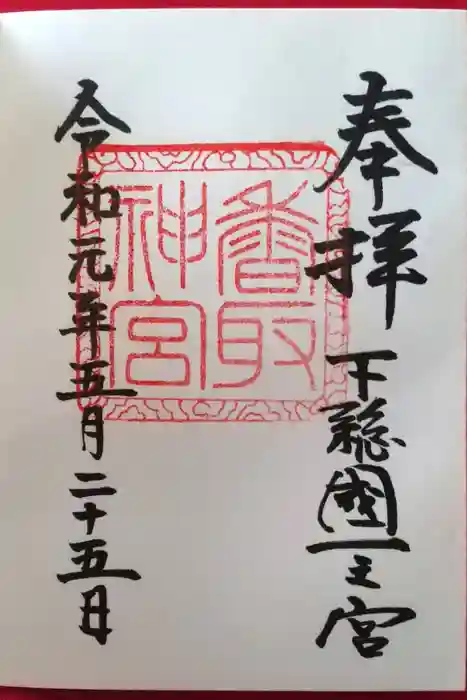 奉拝
下総國一之宮
香取
神宮
令和元年五月二十五日